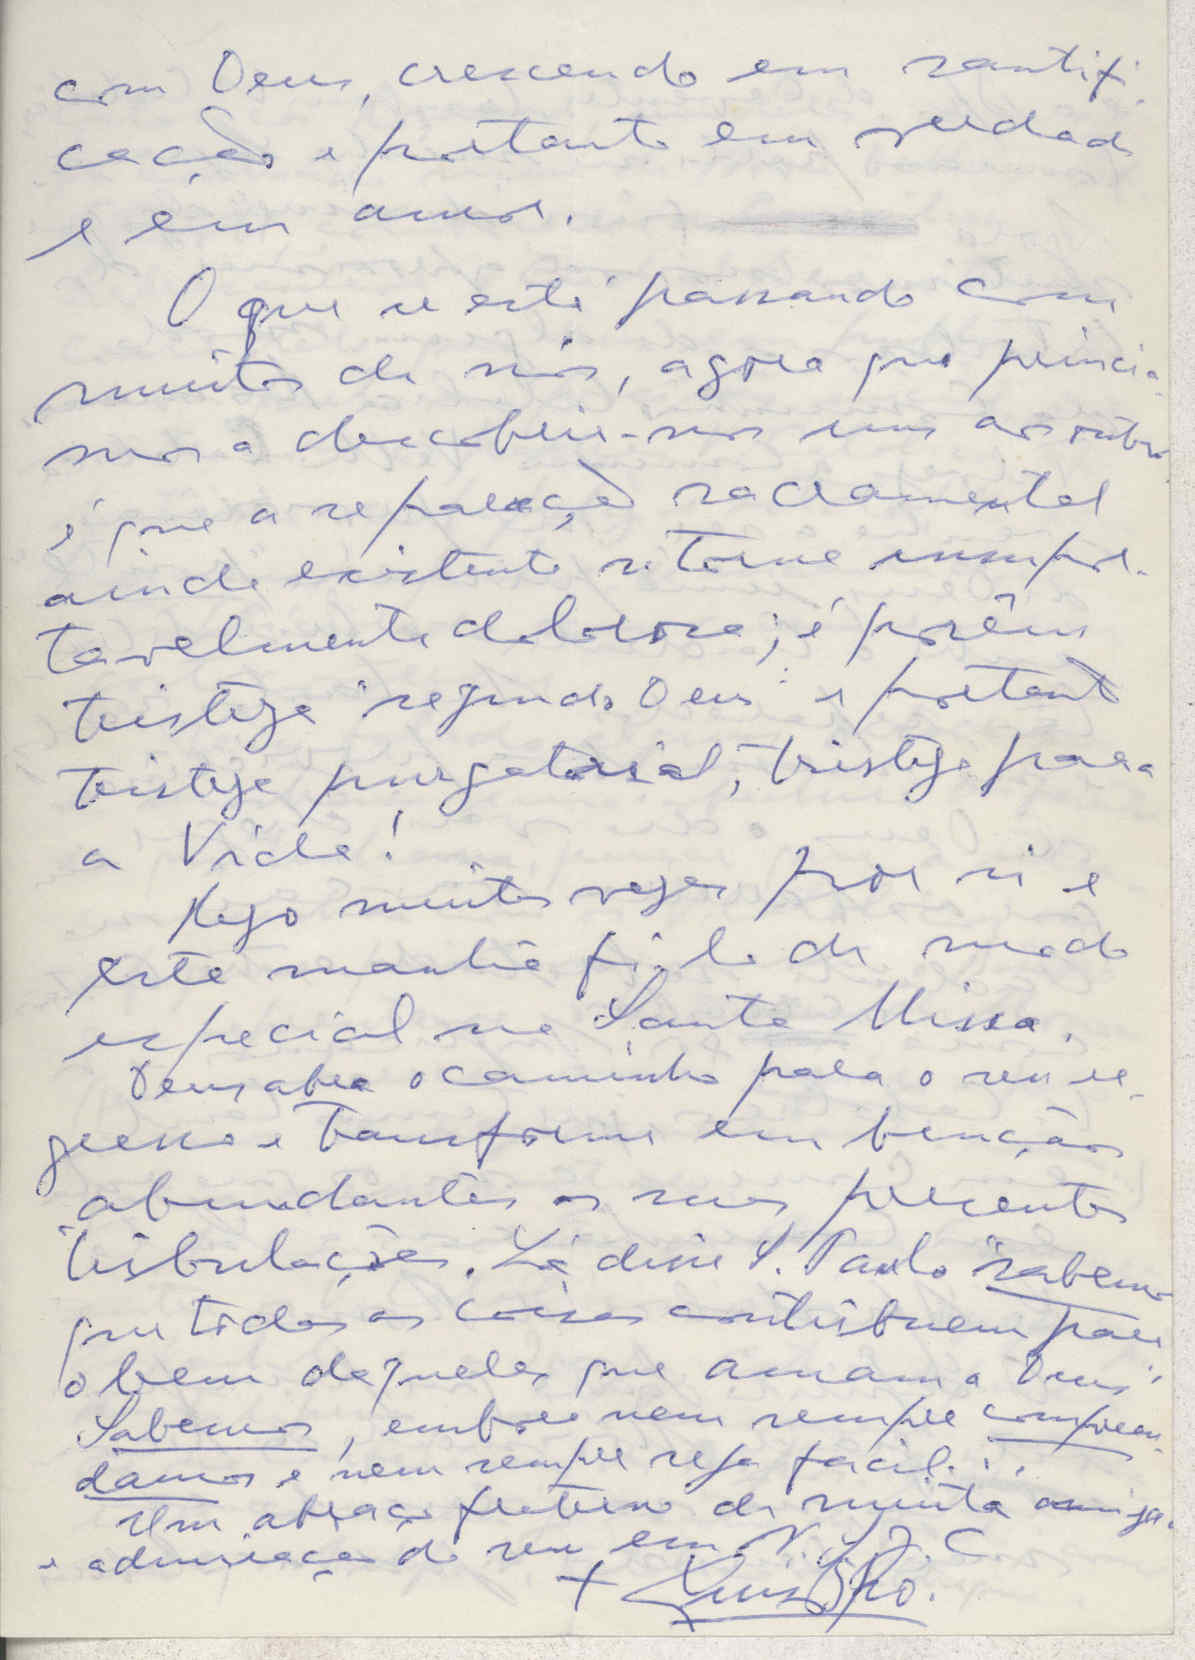 com Deus, crescendo em santifi-
cação e portanto em verdade
e em amor.
O que se está passando com
muitos de nós, agora que princia-
mos a descobrir-nos uns aos outros
é que a separação sacramental
ainda existente se torne insupor-
tavelmente dolorosa; é porém
tristeza "segundo Deus" e portanto
tristeza purgatorial, tristeza para
a Vida!
Rezo muitas vezes por si e
esta manhã fi-lo de modo
especial na Santa Missa.
Deus abra o caminho para o seu re-
gresso e transforme em benções
abundantes as suas presentes
tribulações. Lá disse S. Paulo "sabemos
que todas as coisas contribuem para
o bem daqueles que amam a Deus"
Sabemos, embora nem sempre compreen-
damos e nem sempre seja facil...
Um abraço fraterno de muita amiza.
e admiração do seu em N. S. J. C.
+ Luis Bpo.